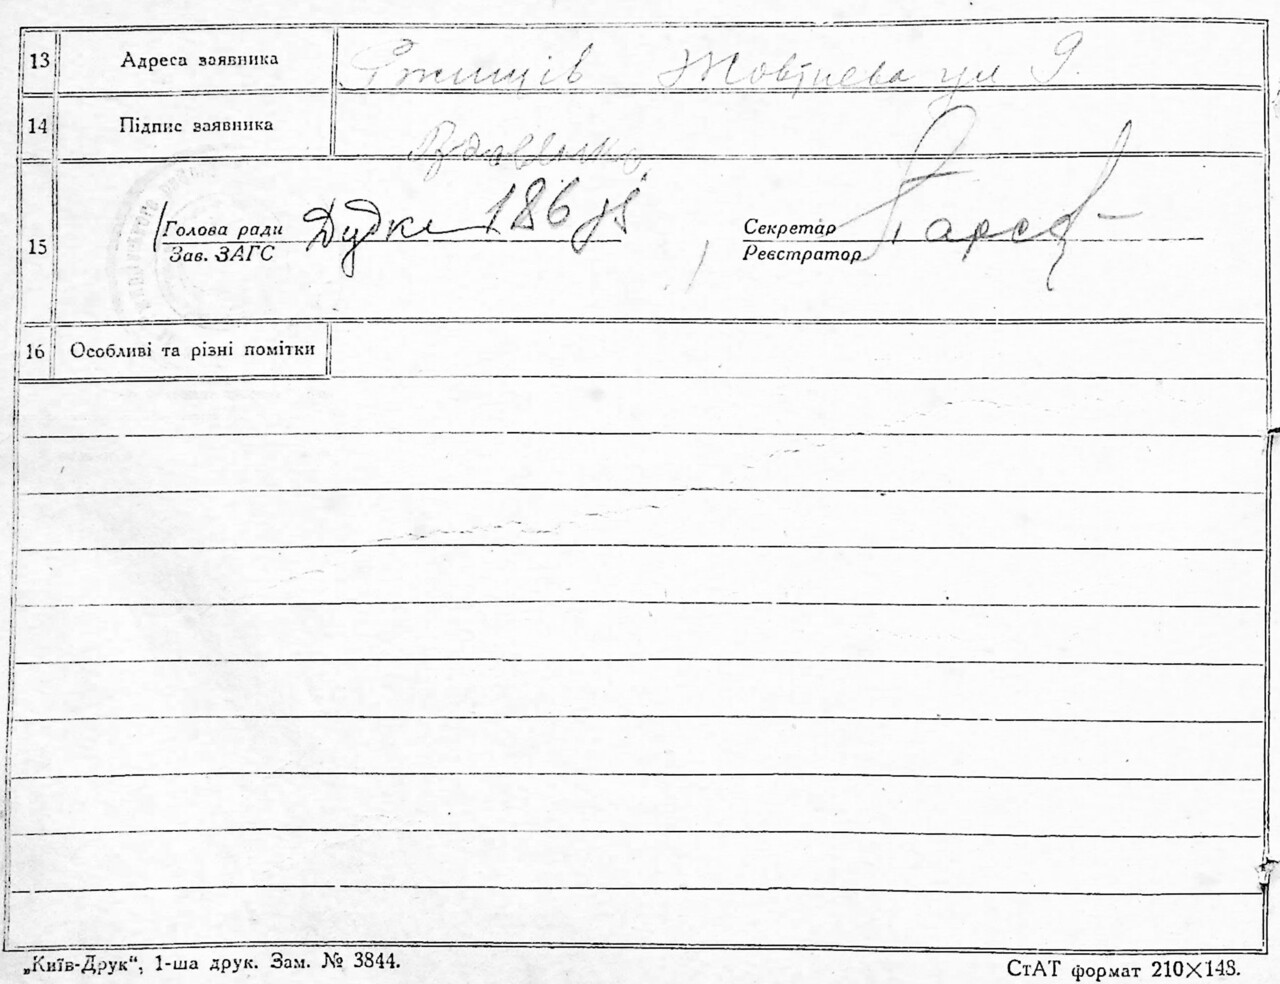 13 Адреса заявника Ржищів Жовтнева ул 9.
14 Підпис заявника
15 Голова ради Дудка Секретар
Зав. ЗАГС Реєстратор
16 Особливі та різні помітки
„Київ-Друк“, 1-ша друк. Зам. № 3844.
СтАТ формат 210×148.